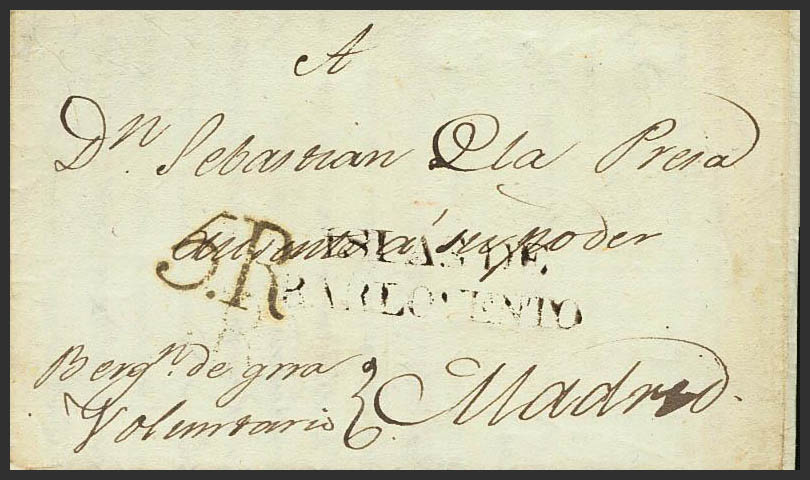 A
Dn. Sebastian de la Presa
ausente á su poder
5.R ISLAS DE
BARLOVENTO
Bergn. de grra
Voluntario
Madrid.